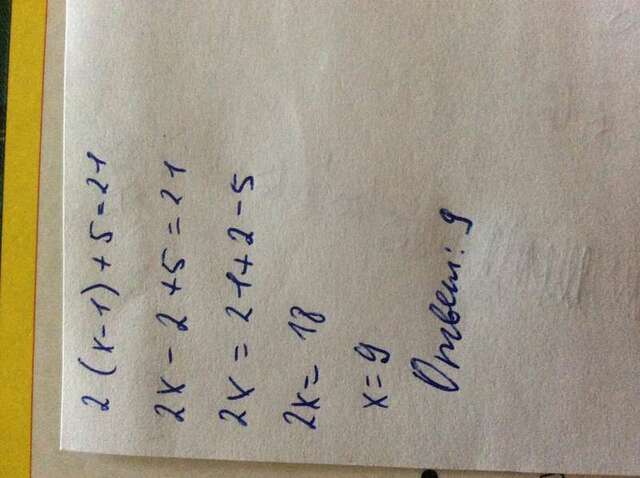 2(x-1)+5=21
2x-2+5=21
2x=21+2-5
2x=18
x=9
Ответ: 9